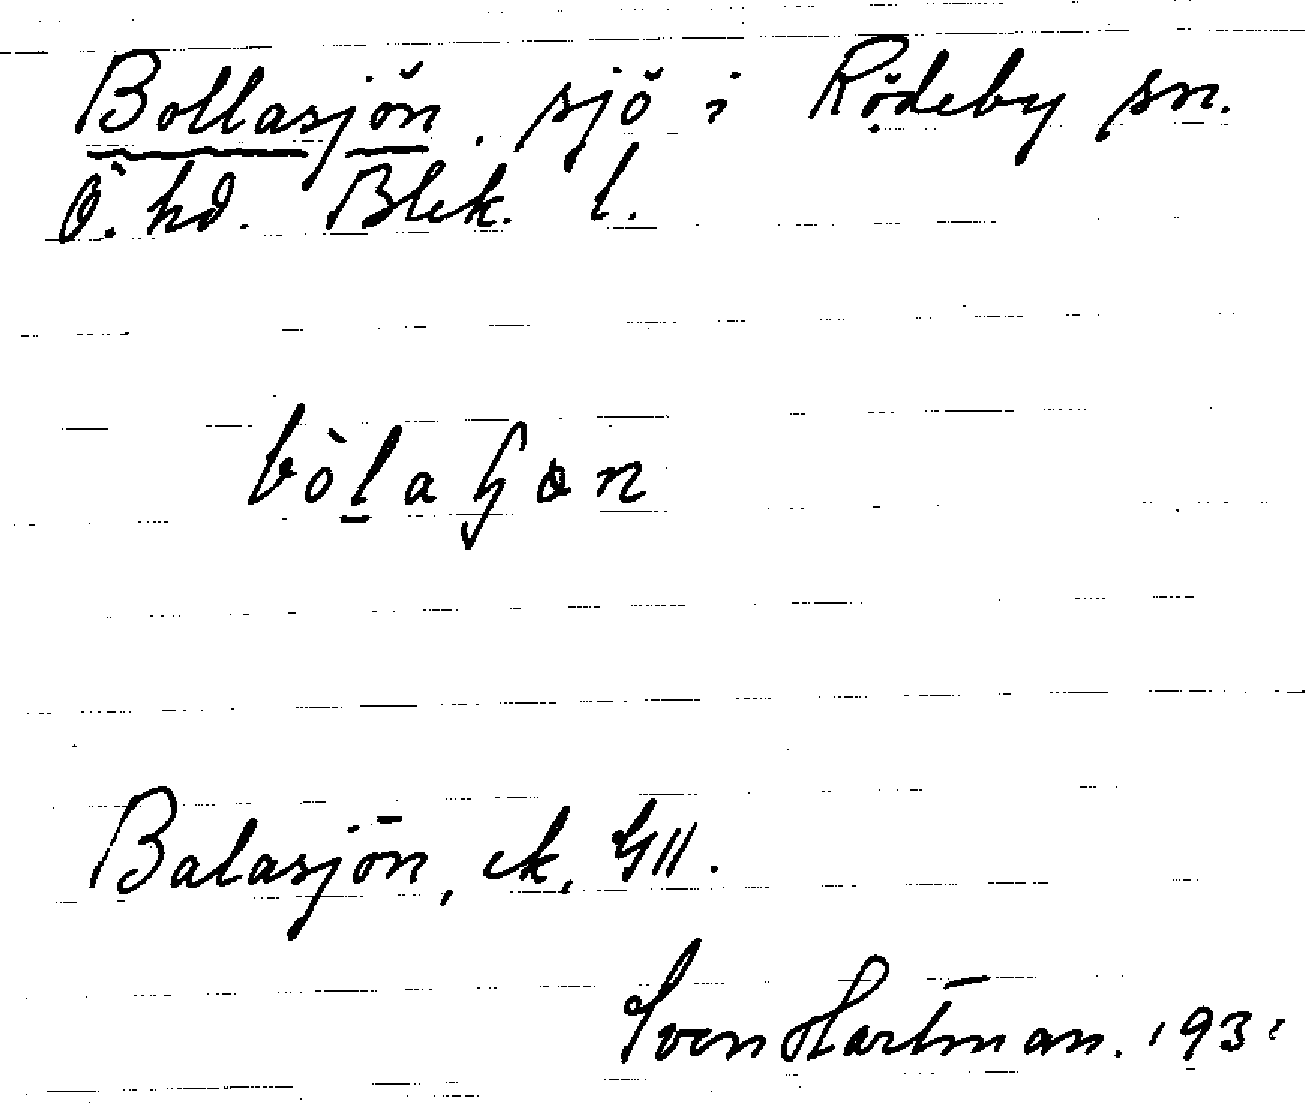 Bollasjön, sjö i Rödeby sn.
Ö. hd. Blek. l.
Balasjön, ek.
Sven Hartman. 1931